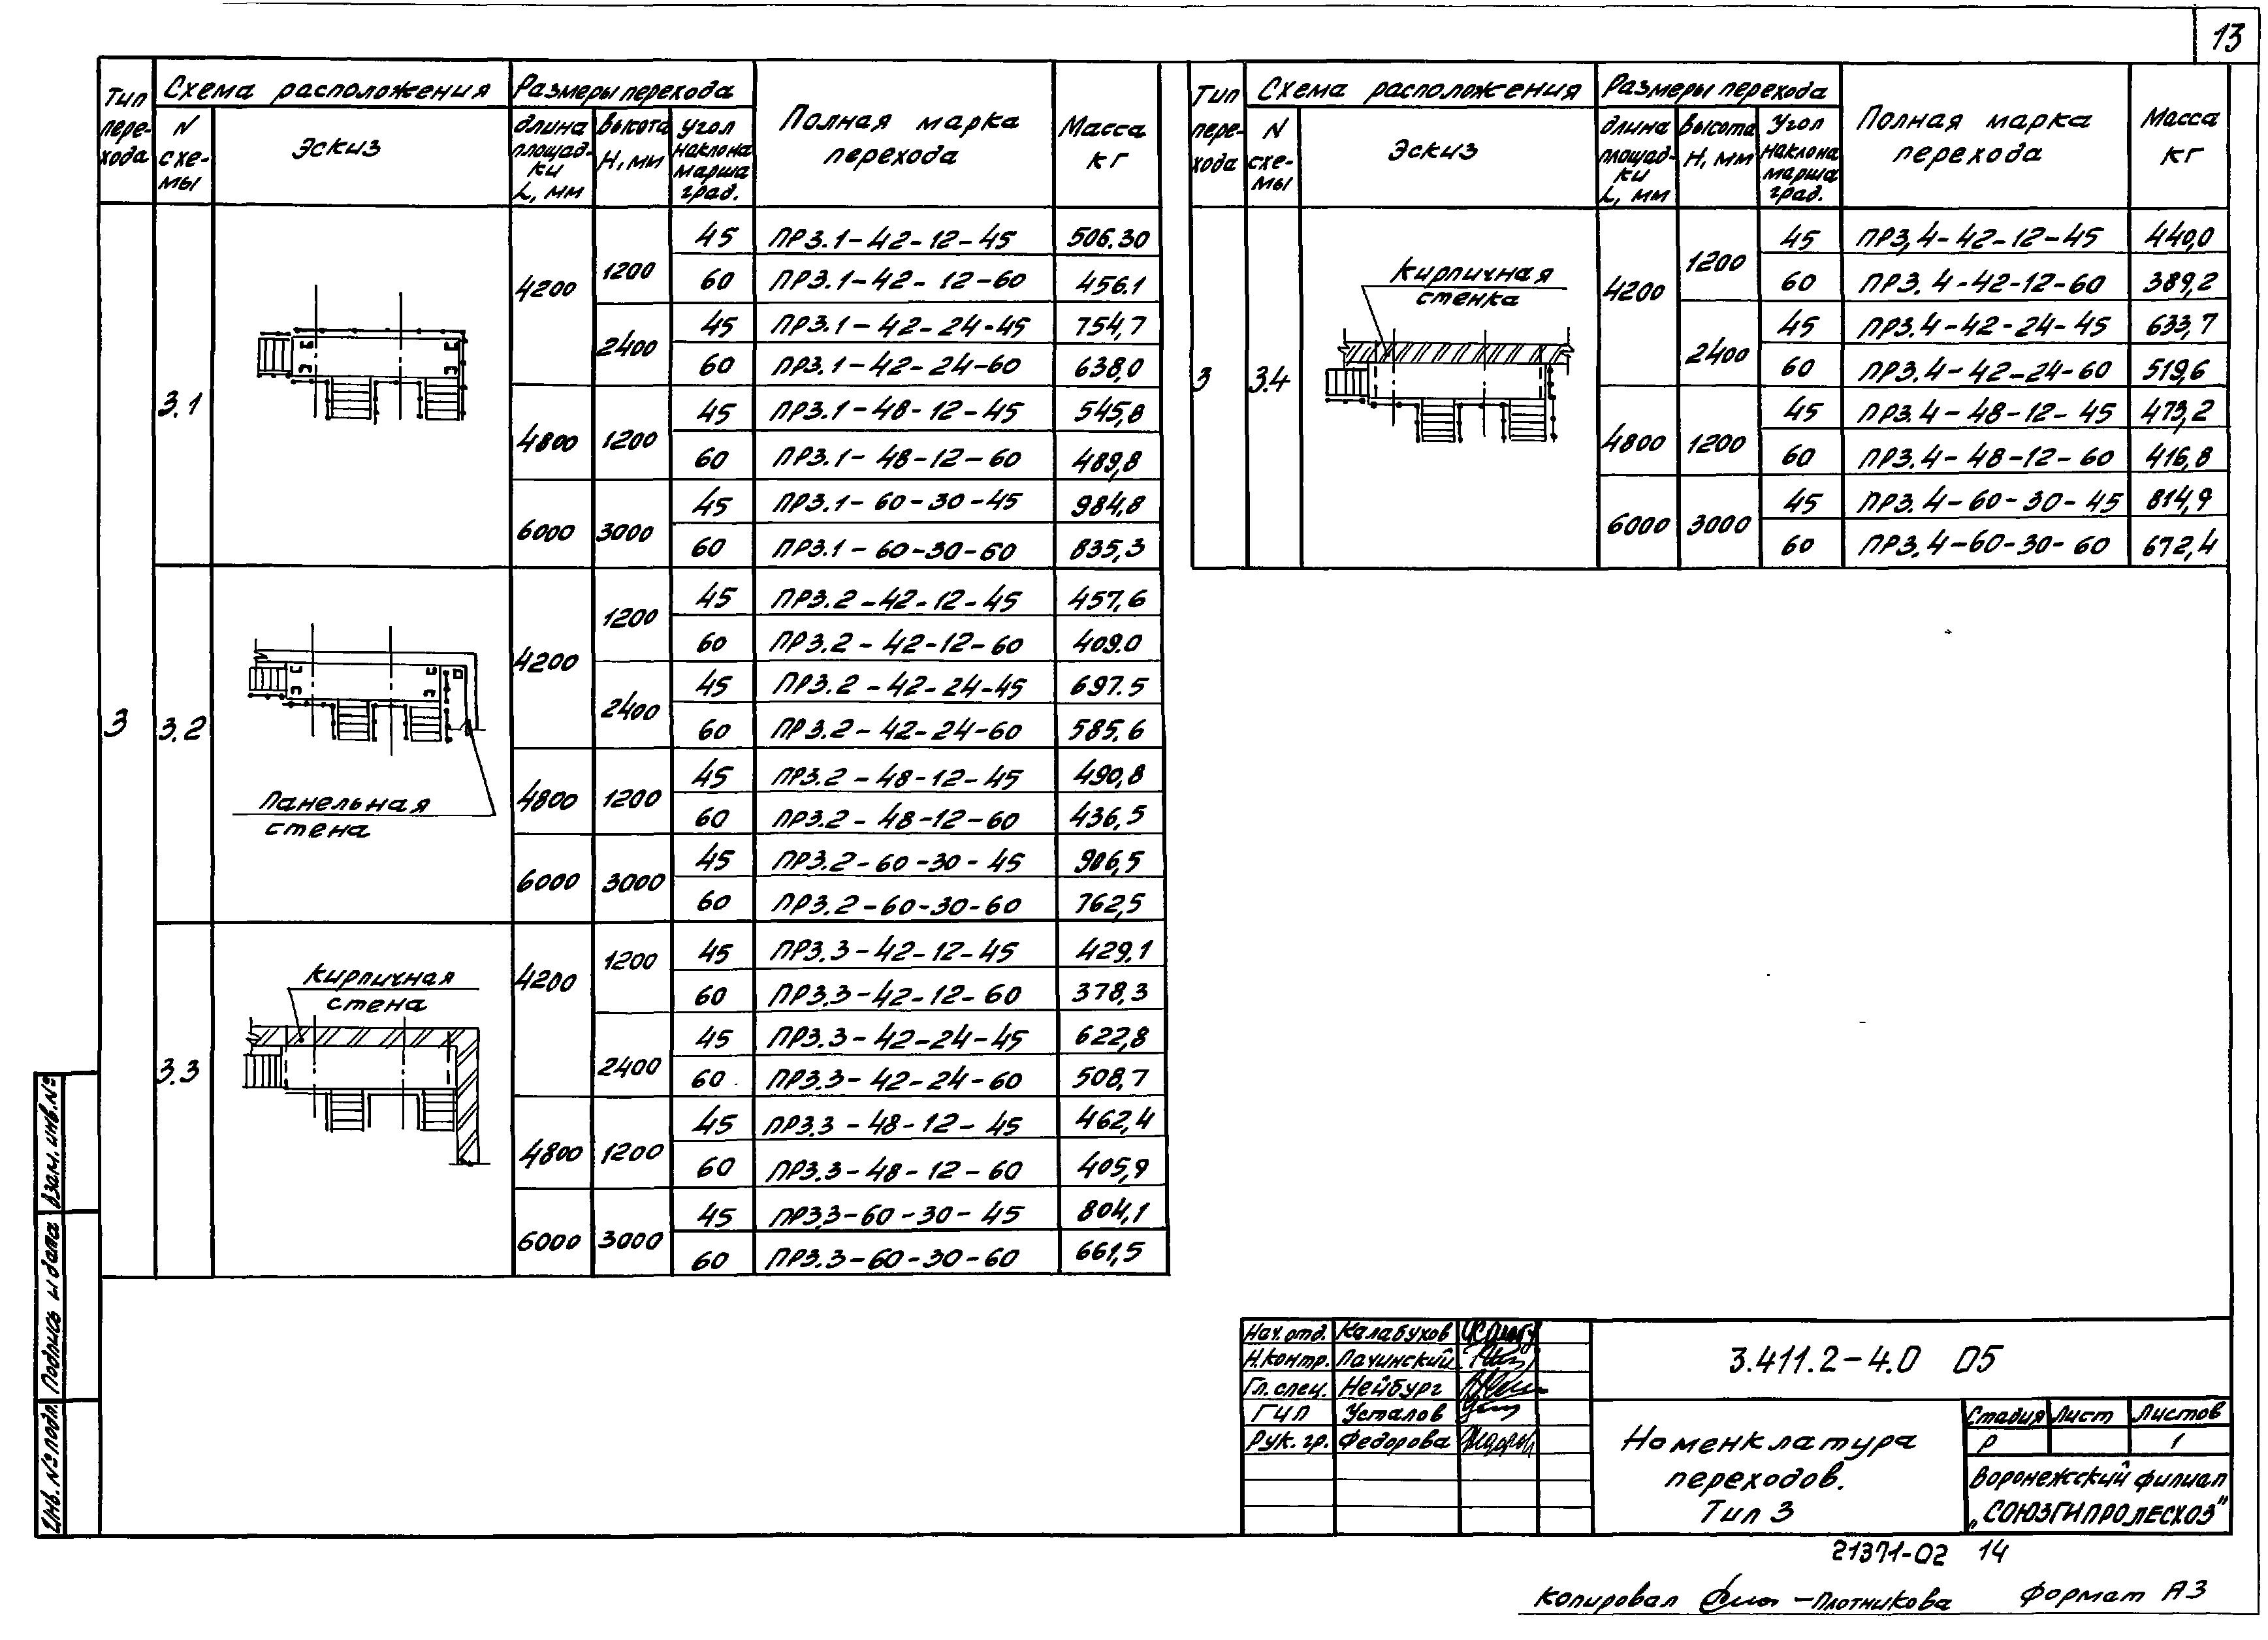 13
Тип пере-хода
Схема расположения
N схе-мы
Эскиз
Размеры перехода
длина площад-ки L, мм
высота Н, мм
Угол наклона марша град.
Полная марка перехода
Масса кг
3
3.1
4200
1200
45 ПР3.1-42-12-45 506.30
60 ПР3.1-42-12-60 456.1
2400
45 ПР3.1-42-24-45 754,7
60 ПР3.1-42-24-60 638,0
4800 1200
45 ПР3.1-48-12-45 545,8
60 ПР3.1-48-12-60 489,8
6000 3000
45 ПР3.1-60-30-45 984,8
60 ПР3.1-60-30-60 835,3
3.2
Панельная
стена
4200
1200
45 ПР3.2-42-12-45 457,6
60 ПР3.2-42-12-60 409.0
2400
45 ПР3.2-42-24-45 697.5
60 ПР3.2-42-24-60 585.6
4800 1200
45 ПР3.2-48-12-45 490,8
60 ПР3.2-48-12-60 436,5
6000 3000
45 ПР3.2-60-30-45 906,5
60 ПР3.2-60-30-60 762,5
3.3
Кирпичная
стена
4200
1200
45 ПР3.3-42-12-45 429,1
60 ПР3.3-42-12-60 378,3
2400
45 ПР3.3-42-24-45 622,8
60 ПР3.3-42-24-60 508,7
4800 1200
45 ПР3.3-48-12-45 462,4
60 ПР3.3-48-12-60 405,9
6000 3000
45 ПР3.3-60-30-45 804,1
60 ПР3.3-60-30-60 661,5
Тип пере-хода
Схема расположения
N схе-мы
Эскиз
Размеры перехода
длина площад-ки L, мм
высота Н, мм
Угол наклона марша град.
Полная марка перехода
Масса кг
3
3.4
Кирпичная
стенка
4200
1200
45 ПР3,4-42-12-45 440,0
60 ПР3.4-42-12-60 389,2
2400
45 ПР3.4-42-24-45 633,7
60 ПР3.4-42-24-60 519,6
4800 1200
45 ПР3.4-48-12-45 473,2
60 ПР3.4-48-12-60 416,8
6000 3000
45 ПР3.4-60-30-45 814,9
60 ПР3.4-60-30-60 672,4
Взам. инв. №
Подпись и дата
Инв. № подл.
Нач. отд. Калабухов
Н.контр. Лачинский
Гл. спец. Нейбург
ГИП Усталов
Рук. гр. Федорова
3.411.2-4.0 05
Номенклатура
переходов.
Тип 3
Стадия Лист Листов
Р 1
Воронежский филиал
„СОЮЗГИПРОЛЕСХОЗ"
21371-02 14
Копировал – Плотникова Формат А3